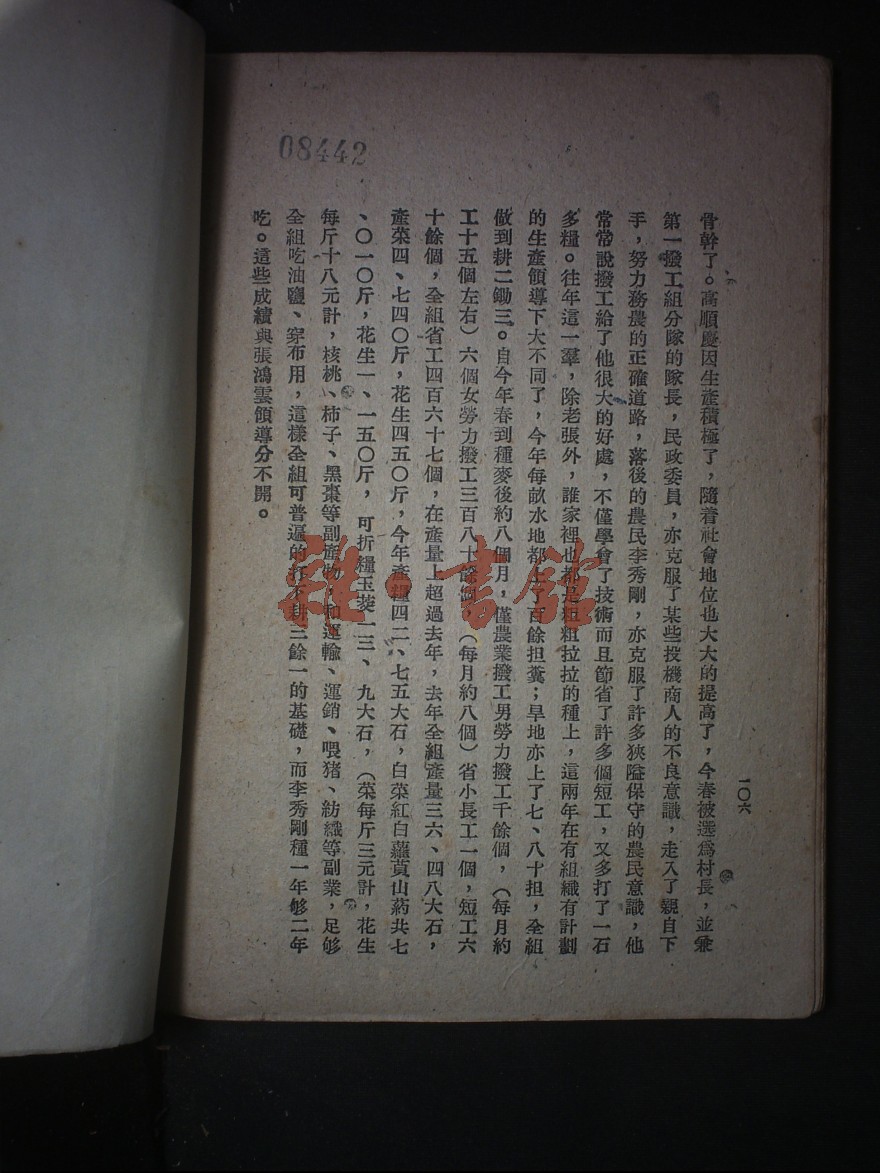 08442
一〇六
骨幹了。高順慶因生產積極了，隨着社會地位也大大的提高了，今春被選爲村長，並兼
第一撥工組分隊的隊長，民政委員，亦克服了某些投機商人的不良意識，走入了親自下
手，努力務農的正確道路，落後的農民李秀剛，亦克服了許多狹隘保守的農民意識，他
常常說撥工給了他很大的好處，不僅學會了技術而且節省了許多個短工，又多打了一石
多糧。往年這一羣，除老張外，誰家裡也都是粗粗拉拉的種上，這兩年在有組織有計劃
的生產領導下大不同了，今年每畝水地都上了百餘担糞；旱地亦上了七、八十担，全組
做到耕二鋤三。自今年春到種麥後約八個月，僅農業撥工男勞力撥工千餘個，（每月約
工十五個左右）六個女勞力撥工三百八十餘個，（每月約八個）省小長工一個，短工六
十餘個，全組省工四百六十七個，在產量上超過去年，去年全組產量三六、四八大石，
產菜四、七四〇斤，花生四五〇斤，今年產糧四二、七五大石，白菜紅白蘿蔔山葯共七
、〇一〇斤，花生一、一五〇斤，可折糧玉茭一三、九大石，（菜每斤三元計，花生
每斤十八元計，核桃、柿子、黑棗等副產物，和運輸、運銷、喂猪、紡織等副業，足够
全組吃油鹽、穿布用，這樣全組可普遍的打下耕三餘一的基礎，而李秀剛種一年够二年
吃。這些成績與張鴻雲領導分不開。
雜·書館